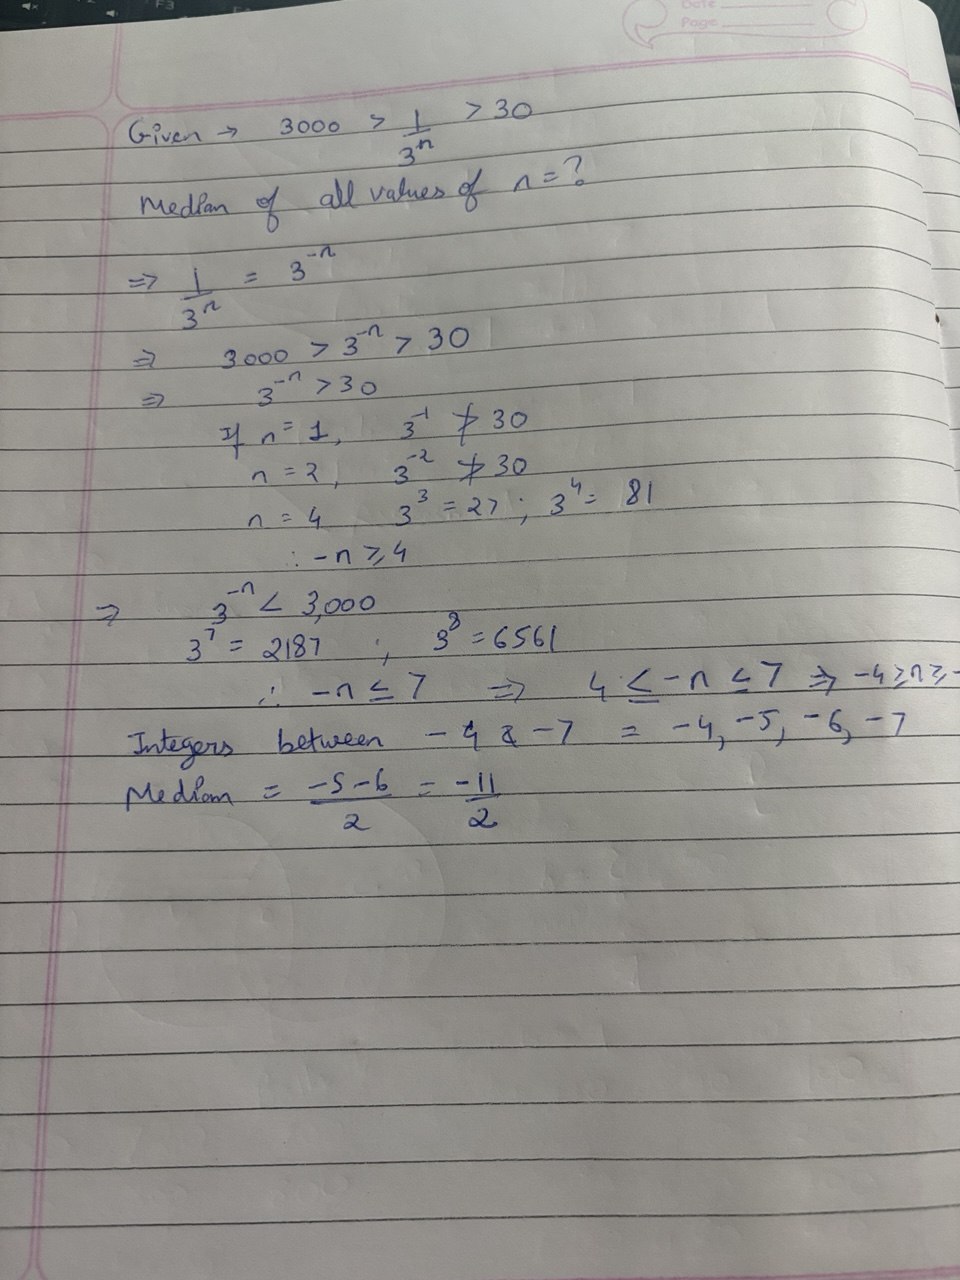 F3
Date
Page
Given → 3000 > 1/3ⁿ > 30
Median of all values of n = ?
⇒ 1/3ⁿ = 3⁻ⁿ
⇒ 3000 > 3⁻ⁿ > 30
⇒ 3⁻ⁿ > 30
If n = 1, 3⁻¹ ≯ 30
n = 2, 3⁻² ≯ 30
n = 4 3³ = 27 ; 3⁴ = 81
∴ -n ≥ 4
⇒ 3⁻ⁿ < 3,000
3⁷ = 2187 ; 3⁸ = 6561
∴ -n ≤ 7 ⇒ 4 ≤ -n ≤ 7 ⇒ -4 ≥ n ≥ -
Integers between - 4 & - 7 = -4, -5, -6, -7
Median = -5-6/2 = -11/2